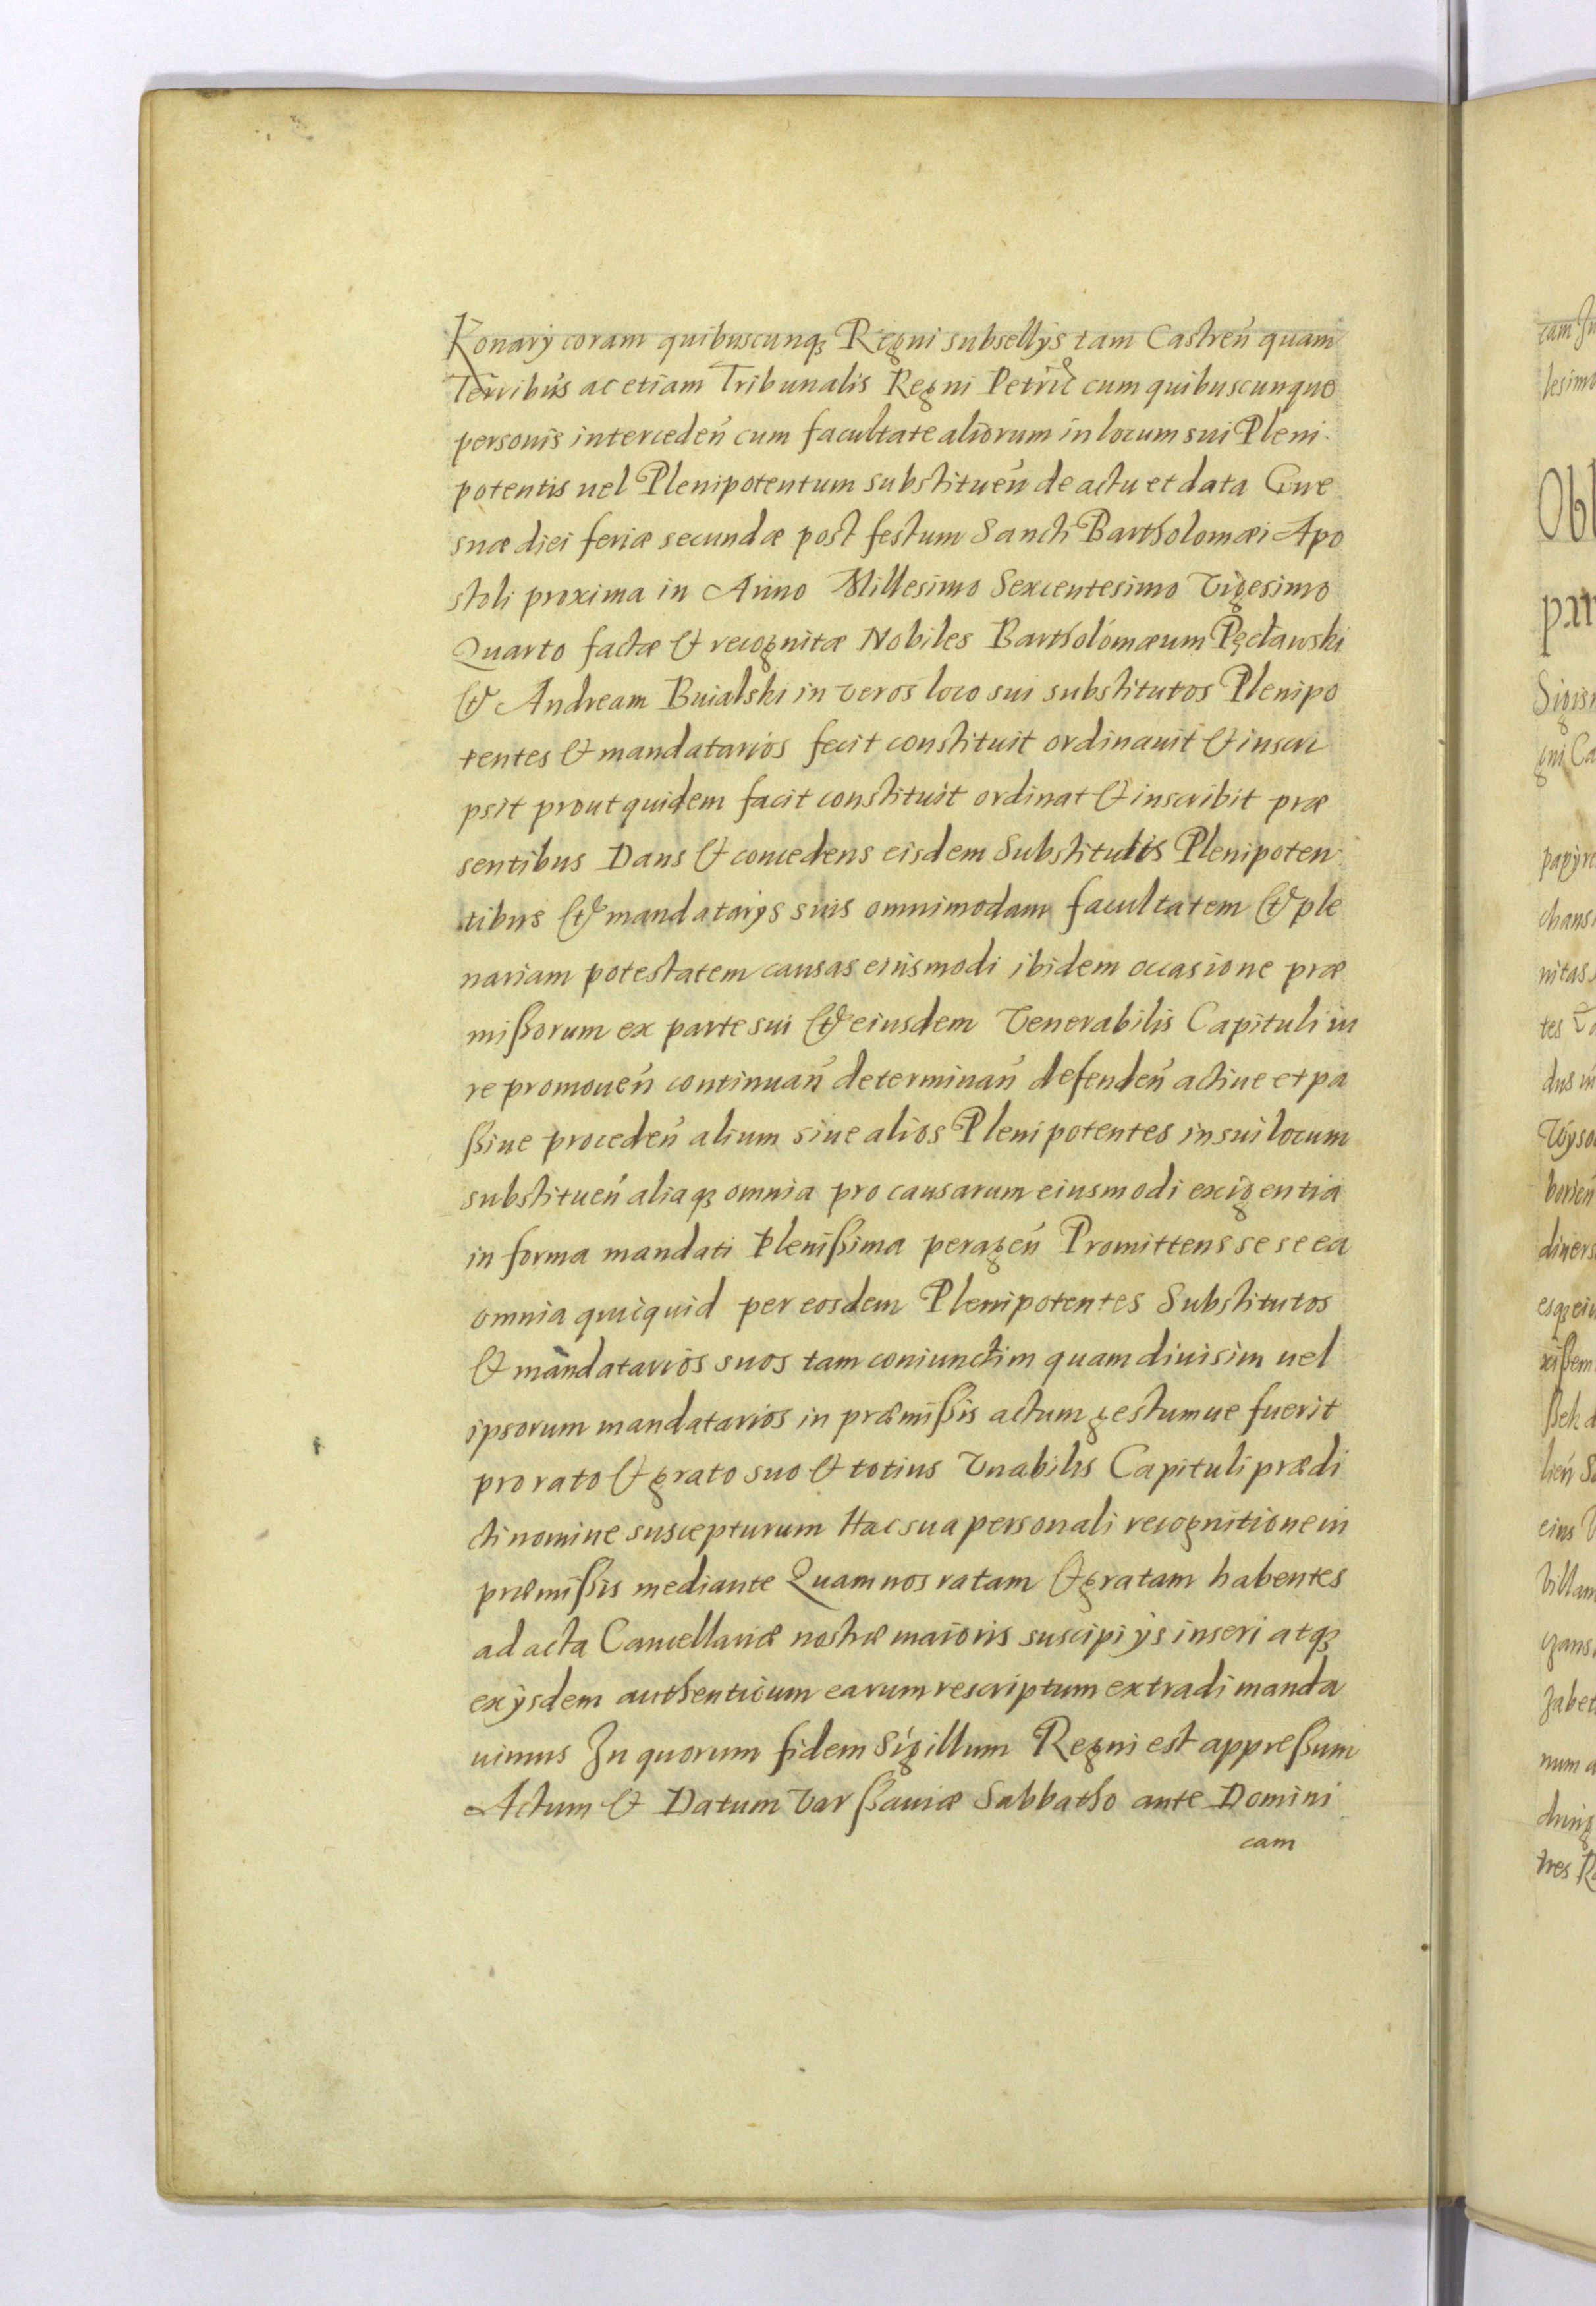 Konary coram quibuscunqꝫ Regni subsellijs tam Castreñ quam
Terribus ac etiam Tribunalis Regni Petric cum quibuscunque
personis intercedeñ cum facultate aliorum in locum sui Pleni
potentis uel Plenipotentum substitueñ de actu et data Gne
snæ diei feriæ secundæ post festum Sancti Bartholomæi Apo
stoli proxima in Anno Millesimo Sexcentesimo Vigesimo
Quarto factæ & recognitæ Nobiles Bartholomæum Pęcławski
& Andream Buialski in veros loco sui substitutos Plenipo
tentes & mandatarios fecit constituit ordinauit & inscri
psit prout quidem facit constituit ordinat & inscribit præ
sentibus Dans & concedens eisdem Substitutis Plenipoten
tibus & mandatarijs suis omnimodam facultatem & ple
nariam potestatem causas eiusmodi ibidem occasione præ
mißorum ex parte sui & eiusdem Venerabilis Capituli iu
re promoueñ continuañ determinañ defendeñ actiue et pa
ßiue procedeñ alium siue alios Plenipotentes in sui locum
substitueñ aliaqꝫ omnia pro causarum eiusmodi exigentia
in forma mandati plenißima perageñ Promittens sese ea
omnia quicquid per eosdem Plenipotentes Substitutos
& mandatarios suos tam coniunctim quam diuisim uel
ipsorum mandatarios in præmißis actum gestumue fuerit
pro rato & grato suo & totius Vnabilis Capituli prædi
cti nomine suscepturum Hac sua personali recognitione in
præmißis mediante Quam nos ratam & gratam habentes
ad acta Cancellariæ nostræ maioris suscipi ijs inseri atqꝫ
ex ijsdem authenticum earum rescriptum extradi manda
uimus In quorum fidem Sigillum Regni est appreßum
Actum & Datum Varßauiæ Sabbatho ante Domini
cam